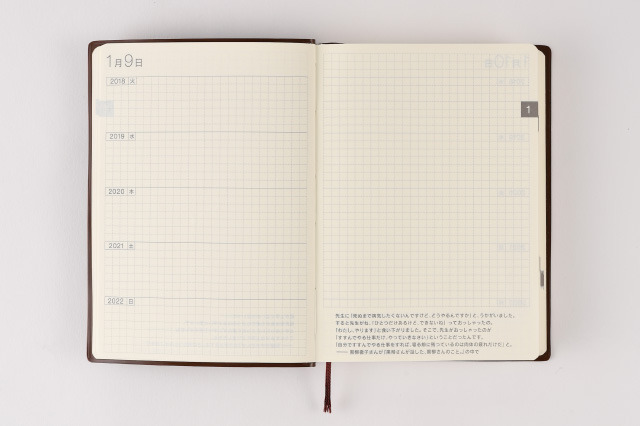 1月9日
2018 火
2019 水
2020 木
2021 土
2022 日
1
先生に「死ぬまで病気したくないんですけど、どうやるんですか」と、うかがいました。
すると先生がね、「ひとつだけあるけど、できないね」っておっしゃったの。
「わたし、やります」と食い下がりました。そこで、先生がおっしゃったのが
「すすんでやる仕事だけ、やっていきなさい」ということだったんです。
「自分ですすんでやる仕事をすれば、寝る前に残っているのは肉体の疲れだけだ」と。
さんが の中で